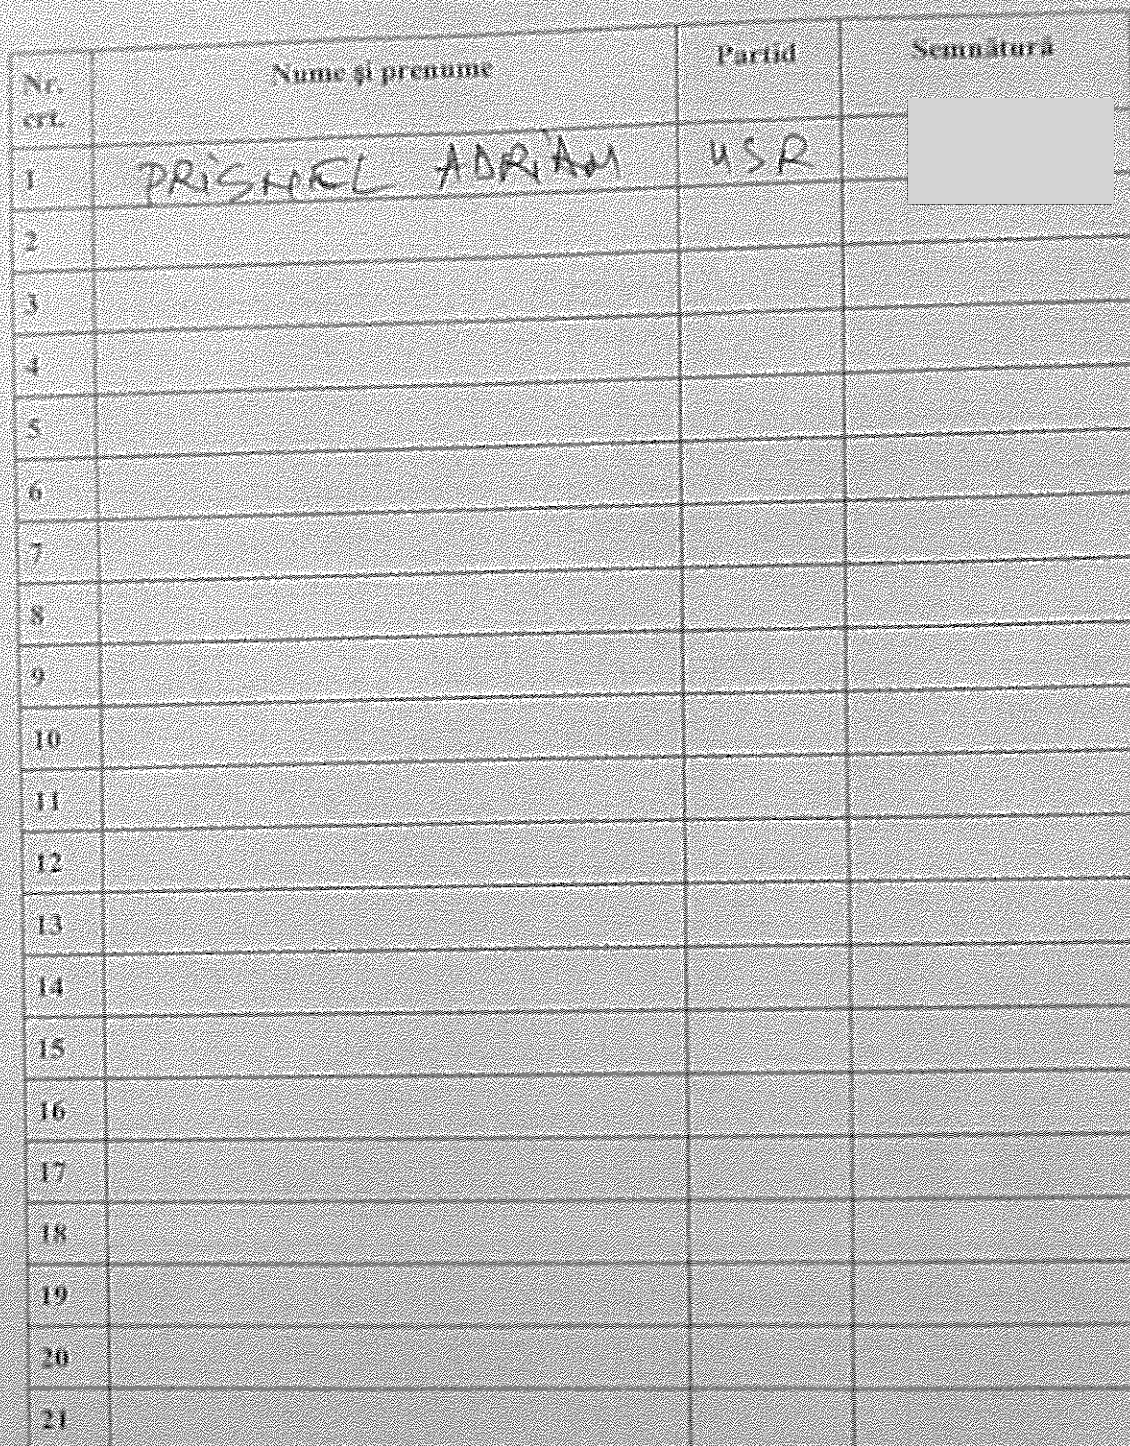 Nr. crt. Nume și prenume Partid Semnătură
1 PRiSNEL ADRiAN USR
2
3
4
5
6
7
8
9
10
11
12
13
14
15
16
17
18
19
20
21